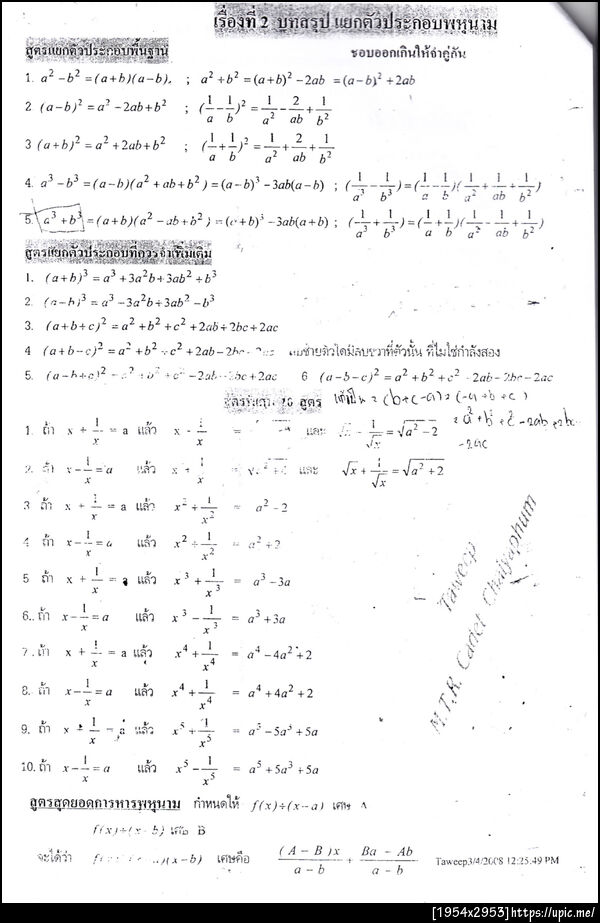 เรื่องที่ 2 บทสรุป แยกตัวประกอบพหุนาม
สูตรแยกตัวประกอบพื้นฐาน ชอบออกเกินให้จำคู่กัน
1. a² - b² = (a+b)(a-b). ; a² + b² = (a+b)² - 2ab = (a-b)² + 2ab
2 (a-b)² = a² - 2ab + b² ; (1/a - 1/b)² = 1/a² - 2/ab + 1/b²
3 (a+b)² = a² + 2ab + b² ; (1/a + 1/b)² = 1/a² + 2/ab + 1/b²
4. a³ - b³ = (a-b)(a² + ab + b²) = (a-b)³ - 3ab(a-b) ; (1/a³ - 1/b³) = (1/a - 1/b)(1/a² + 1/ab + 1/b²)
5. a³ + b³ = (a+b)(a² - ab + b²) = (a+b)³ - 3ab(a+b) ; (1/a³ + 1/b³) = (1/a + 1/b)(1/a² - 1/ab + 1/b²)
สูตรแยกตัวประกอบที่ควรจำเพิ่มเติม
1. (a+b)³ = a³ + 3a²b + 3ab² + b³
2. (a-b)³ = a³ - 3a²b + 3ab² - b³
3. (a+b+c)² = a² + b² + c² + 2ab + 2bc + 2ac
4 (a+b-c)² = a² + b² + c² + 2ab - 2bc - 2ac ที่ตัวนั้น ที่ไม่ใช่กำลังสอง
5. (a-b+c)² = a² + b² + c² - 2ab - 2bc + 2ac 6 (a-b-c)² = a² + b² + c² - 2ab - 2bc - 2ac
สูตร
= a² + b² + c² - 2ab + 2bc
- 2ac
1. ถ้า x + 1/x = a แล้ว x - 1/x = และ √x - 1/√x = √a - 2
2. ถ้า x - 1/x = a แล้ว x + 1/x = และ √x + 1/√x = √a² + 2
3 ถ้า x + 1/x = a แล้ว x² + 1/x² = a² - 2
4 ถ้า x - 1/x = a แล้ว x² + 1/x² = a² + 2
5 ถ้า x + 1/x = a แล้ว x³ + 1/x³ = a³ - 3a
6. ถ้า x - 1/x = a แล้ว x³ - 1/x³ = a³ + 3a
7. ถ้า x + 1/x = a แล้ว x⁴ + 1/x⁴ = a⁴ - 4a² + 2
8. ถ้า x - 1/x = a แล้ว x⁴ + 1/x⁴ = a⁴ + 4a² + 2
9. ถ้า x + 1/x = a แล้ว x⁵ + 1/x⁵ = a⁵ - 5a³ + 5a
10. ถ้า x - 1/x = a แล้ว x⁵ - 1/x⁵ = a⁵ + 5a³ + 5a
Taweep
M.T.R. Cadet Chaiyaphum
สูตรสุดยอดการหารพหุนาม กำหนดให้ f(x)÷(x-a) เศษ A
f(x)÷(x-b) เศษ B
จะได้ว่า f(x)÷(x-a)(x-b) เศษคือ (A-B)x/a-b + Ba-Ab/a-b Taweep3/4/2008 12:25:49 PM
[1954x2953]https://upic.me/